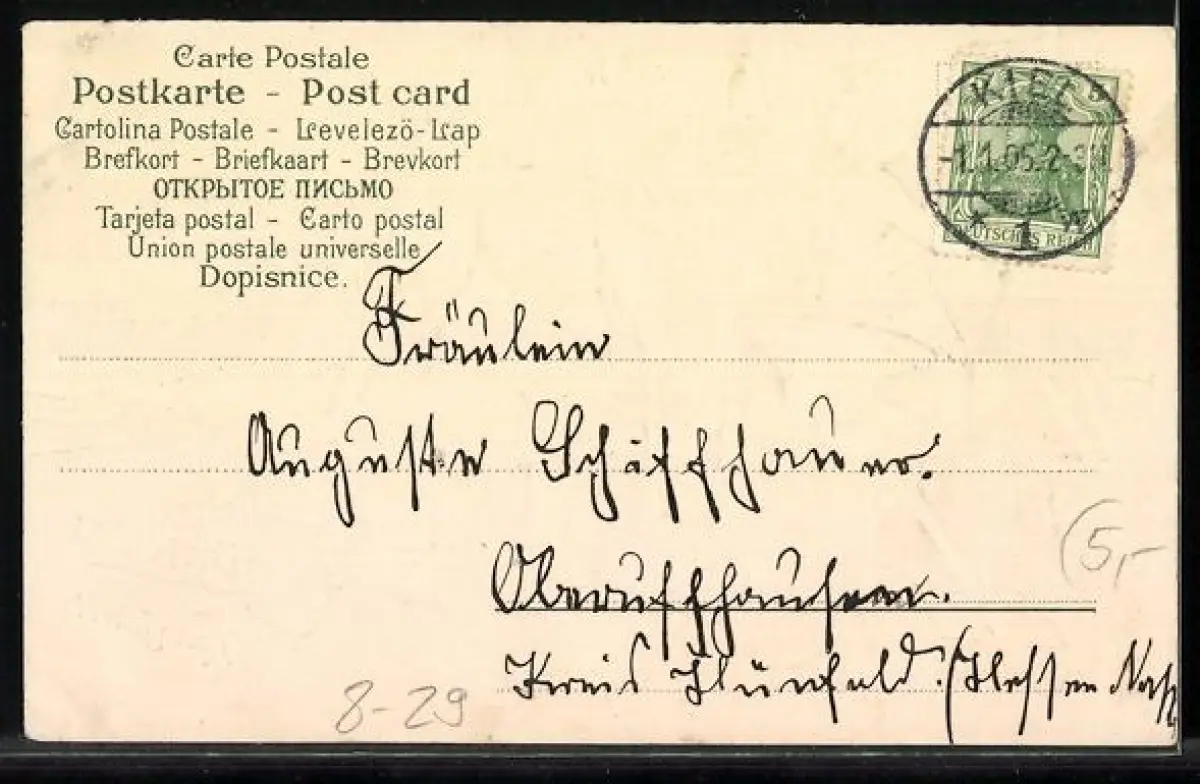 Carte Postale
Postkarte - Post card
Cartolina Postale - Levelezö-Lap
Brefkort - Briefkaart - Brevkort
ОТКРЫТОЕ ПИСЬМО
Tarjeta postal - Carto postal
Union postale universelle
Dopisnice.
KIEL
-1.1.05.2-3
* 1
DEUTSCHES REICH
Fräulein
Auguste Schiffhauer.
Oberufhausen.
Kreis Hünfeld. (Hessen Nass
(5,-
8-29